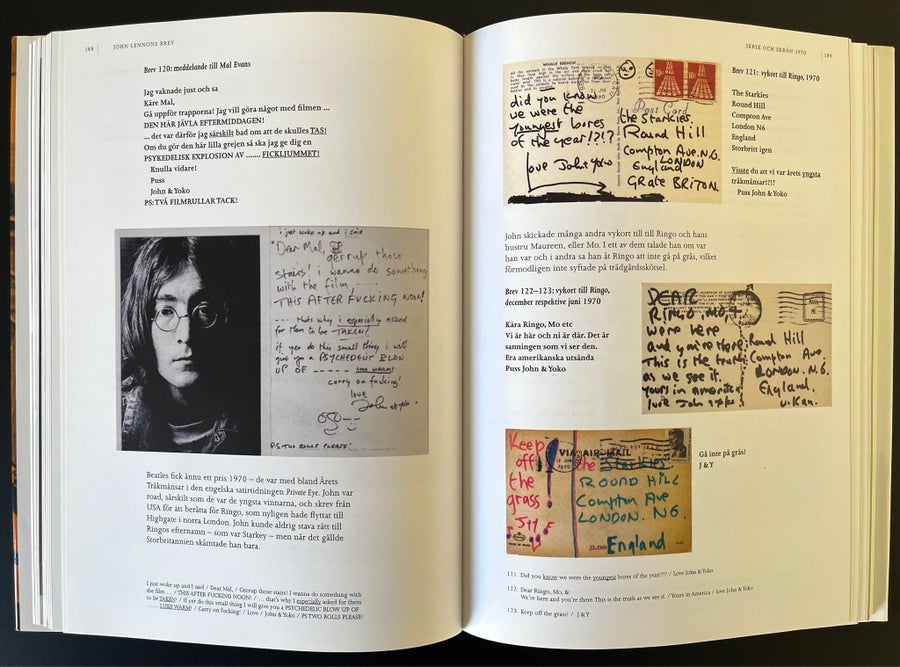 188 | JOHN LENNONS BREV
Brev 120: meddelande till Mal Evans
Jag vaknade just och sa
Käre Mal,
Gå uppför trapporna! Jag vill göra något med filmen ...
DEN HÄR JÄVLA EFTERMIDDAGEN!
... det var därför jag särskilt bad om att de skulles TAS!
Om du gör den här lilla grejen så ska jag ge dig en
PSYKEDELISK EXPLOSION AV ....... FICKLJUMMET!
Knulla vidare!
Puss
John & Yoko
PS: TVÅ FILMRULLAR TACK!
i just woke up and i said
"Dear Mal,
gerrup those
stairs! i wanna do something
with the film
THIS AFTER FUCKING NOON!
---- thats why i especially asked
for them to be TAKEN!
if yer do this small thing i will
give you a PSYCHEDELIC BLOW
UP OF ----- LUKE WARM!
carry on fucking!
love
John + yoko.
P.S TWO ROLLS PLEASE!
Beatles fick ännu ett pris 1970 – de var med bland Årets
Tråkmånsar i den engelska satirtidningen Private Eye. John var
road, särskilt som de var de yngsta vinnarna, och skrev från
USA för att berätta för Ringo, som nyligen hade flyttat till
Highgate i norra London. John kunde aldrig stava rätt till
Ringos efternamn – som var Starkey – men när det gällde
Storbritannien skämtade han bara.
I just woke up and I said / Dear Mal, / Gerrup those stairs! I wanna do something with
the film ... / THIS AFTER FUCKING NOON! / ... that's why I especially asked for them
to be TAKEN! / If yer do this small thing I will give you a PSYCHEDELIC BLOW UP OF
...... LUKE WARM! / Carry on fucking! / Love / John & Yoko / PS TWO ROLLS PLEASE!
SKRIK OCH SKRÄN 1970 | 189
WHALE BREACH
Post Card
did you know
we were the
youngest bores
of the year!?!?
love John + yoko
the Starkies.
Round Hill
Compton Ave. N.6.
LONDON
England
GRATE BRITON.
Brev 121: vykort till Ringo, 1970
The Starkies
Round Hill
Compton Ave
London N6
England
Storbritt igen
Visste du att vi var årets yngsta
tråkmånsar!?!?
Puss John & Yoko
John skickade många andra vykort till till Ringo och hans
hustru Maureen, eller Mo. I ett av dem talade han om var
han var och i andra sa han åt Ringo att inte gå på gräs, vilket
förmodligen inte syftade på trädgårdsskötsel.
Brev 122–123: vykort till Ringo,
december respektive juni 1970
Kära Ringo, Mo etc
Vi är här och ni är där. Det är
sanningen som vi ser den.
Era amerikanska utsända
Puss John & Yoko
DEAR
RINGO, MO, +
were here
and you're there.
This is the truth
as we see it.
yours in america
love John + yoko
Round Hill
Compton Ave,
LONDON. N.6.
England.
U.Kan.
Keep
off
the
grass!
J+Y
VIA AIR MAIL
the Starkies
ROUND HILL
Compton Ave
LONDON. N6.
England
Gå inte på gräs!
J & Y
121. Did you know we were the youngest bores of the year?!?! / Love John & Yoko
122. Dear Ringo, Mo, &
We're here and you're there. This is the truth as we see it. / Yours in America / love John & Yoko
123. Keep off the grass! / J & Y